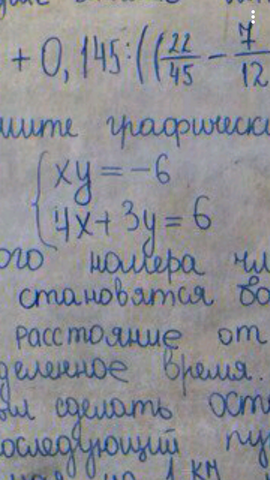 + 0,145:((22/45 - 7/12
шите графически
{ xy = -6
4x + 3y = 6
ого номера чл
становятся бо
расстояние от
деленное время.
ам сделать ост
оследующий пу
на 1 км